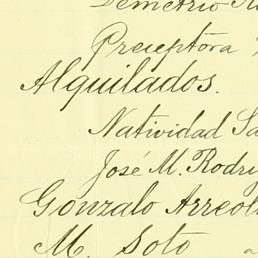 Demetrio
Preceptora
Alquilados.
Natividad Sa
José M. Rodri
Gonzalo Arreol
M. Soto